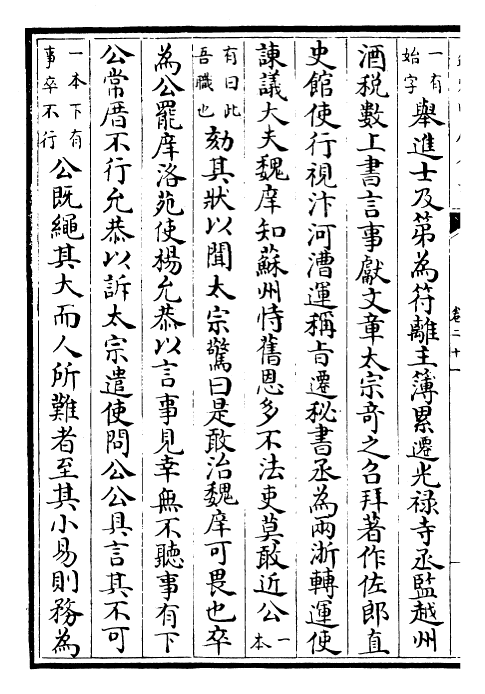 一有始字舉進士及第為符離主簿累遷光禄寺丞監越州
酒税數上書言事獻文章太宗奇之召拜著作佐郎直
史館使行視汴河漕運稱旨遷秘書丞為兩浙轉運使
諫議大夫魏庠知蘇州恃舊恩多不法吏莫敢近公一本
有曰此吾職也劾其狀以聞太宗驚曰是敢治魏庠可畏也卒
為公罷庠洛苑使楊允恭以言事見幸無不聽事有下
公常厝不行允恭以訴太宗遣使問公公具言其不可
一本下有事卒不行公既繩其大而人所難者至其小易則務為
卷二十一